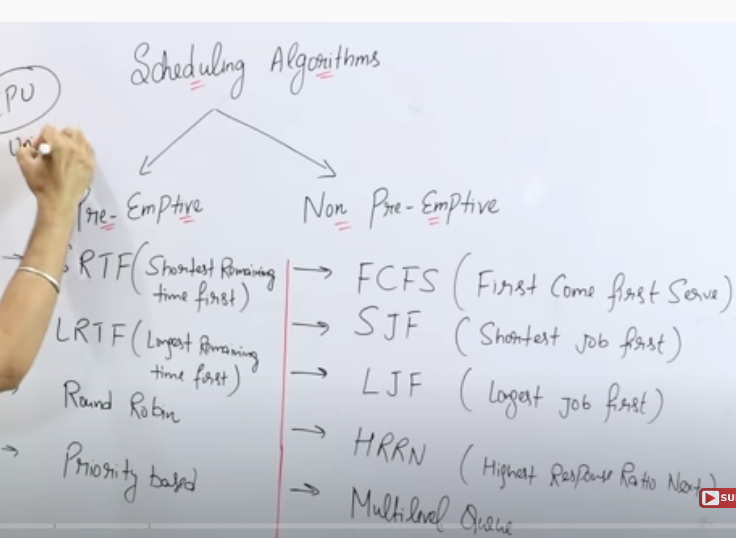 Scheduling Algorithms
PU
Pre-Emptive
Non Pre-Emptive
SRTF (Shortest Remaining
time first)
LRTF (Longest Remaining
time first)
Round Robin
Priority based
FCFS (First Come first Serve)
SJF (Shortest Job first)
LJF (Longest Job first)
HRRN (Highest Response Ratio Next)
Multilevel Queue
SU